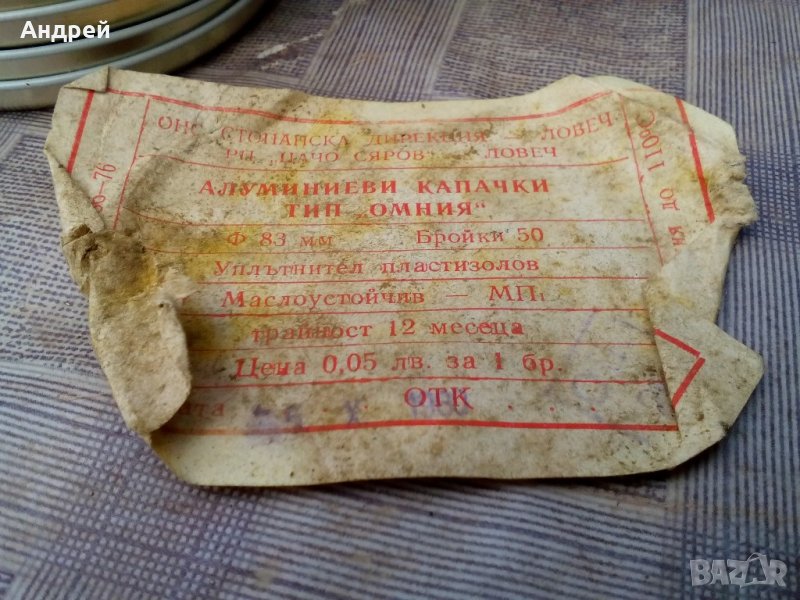 Андрей
СТОПАНСКА ДИРЕКЦИЯ — ЛОВЕЧ
РП „ЦАЧО СЯРОВ“ — ЛОВЕЧ
АЛУМИНИЕВИ КАПАЧКИ
ТИП „ОМНИЯ“
Ф 83 мм Бройки 50
Уплътнител пластизолов
Маслоустойчив — МП₁
трайност 12 месеца
Цена 0,05 лв. за 1 бр.
ОТК . . . .
—76
до 110°С
BAZAR